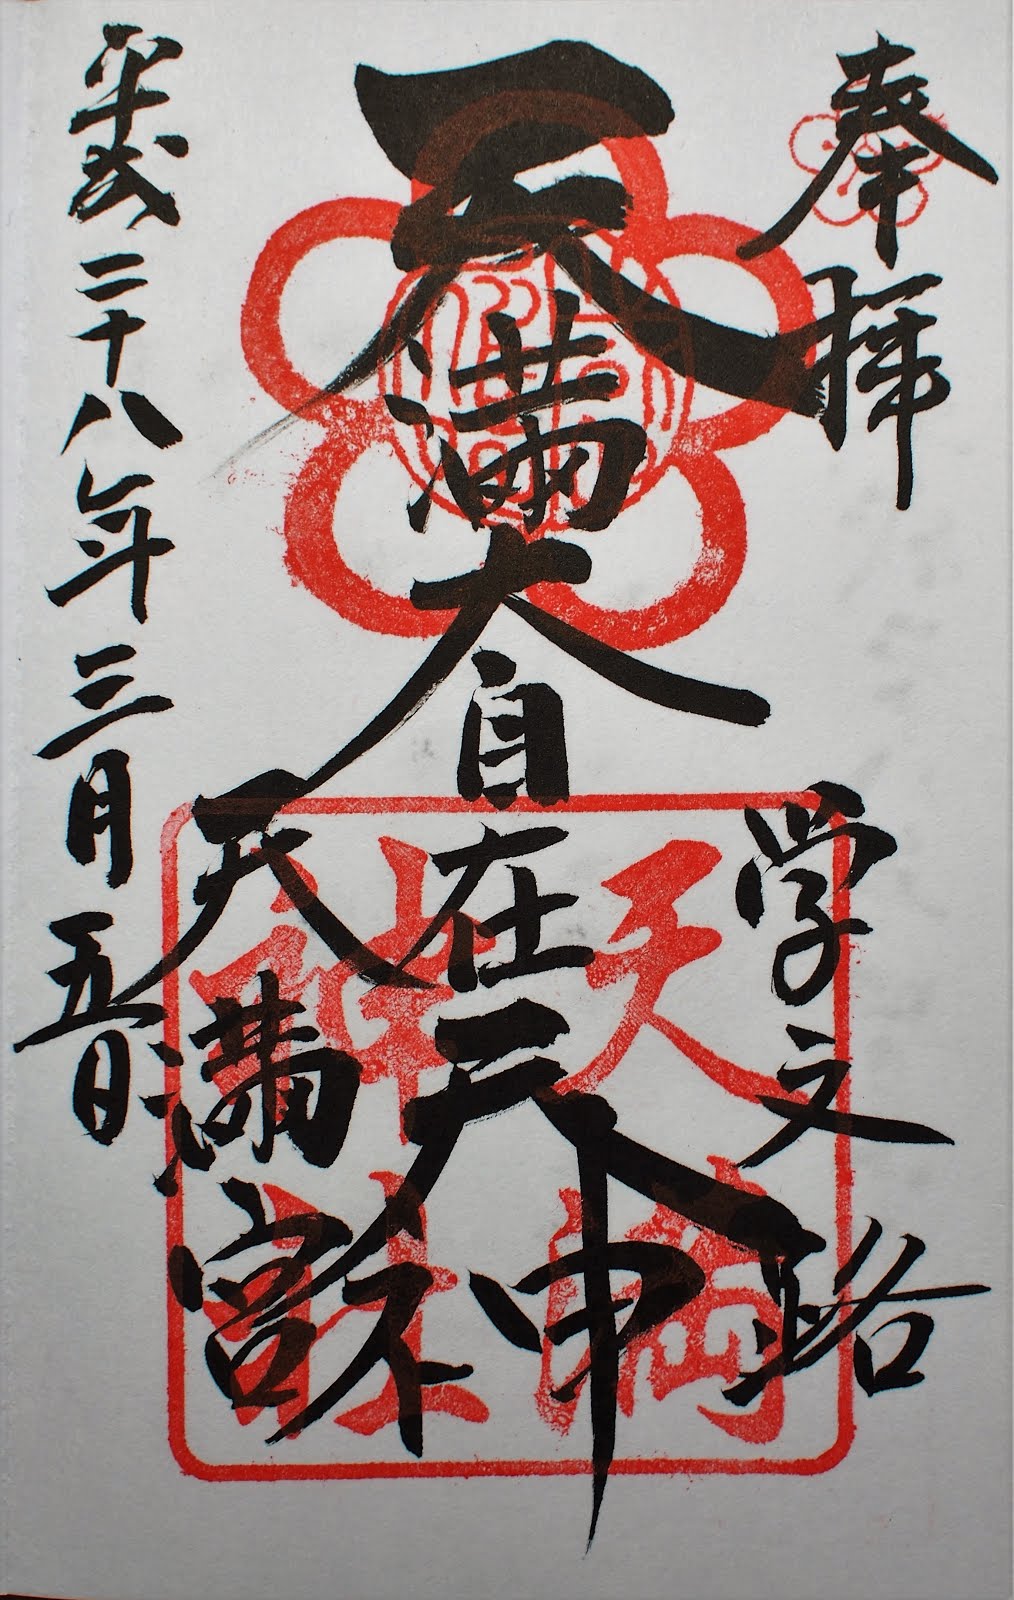 奉拝
学文路
天満大自在天神
天満宮
平成二十八年三月五日
天満
神社